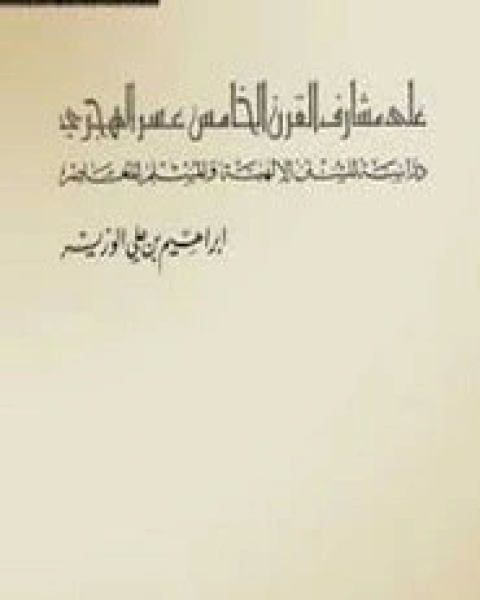 على مشارف القرن الخامس عشر الهجري
دراسة للسنن الإلهية والمسلم المعاصر
ابراهيم بن علي الوزير